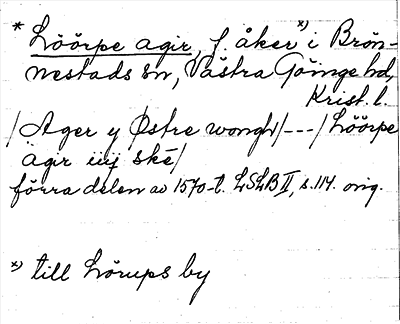 * Löörpe agir, f. åker x) i Brön-
nestads sn, Västra Göinge hd,
Krist. l.
/ Ager y Østre wongh/---/ Löörpe
agir iiij ske/
förra delen av 1570-t. LSLB II, s. 114. orig.
x) till Lörups by